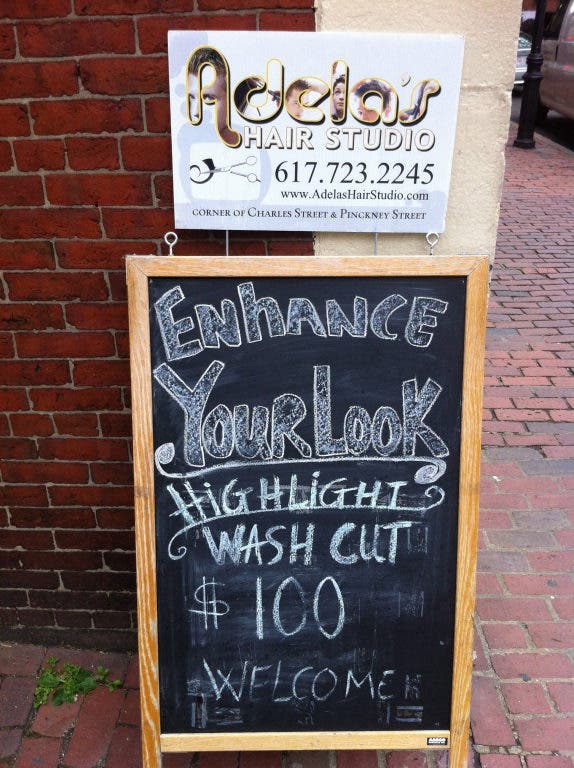 Adela's
HAIR STUDIO
617.723.2245
www.AdelasHairStudio.com
CORNER OF CHARLES STREET & PINCKNEY STREET
ENHANCE
YOUR LOOK
HiGHLiGHT
WASH CUT
$ 100
WELCOME